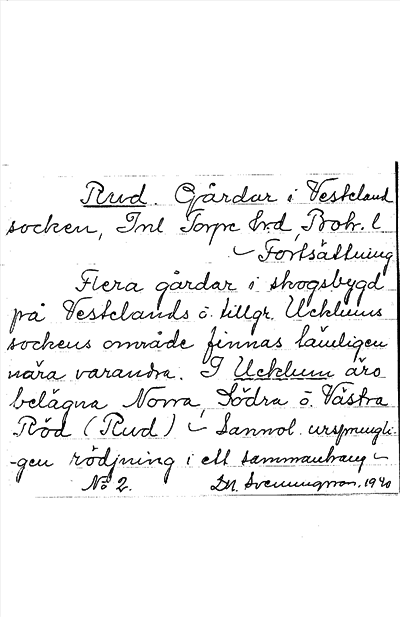 Rud. Gårdar i Vesteland
socken, Inl Torpe hrd, Boh. l
– Fortsättning
Flera gårdar i skogsbygd
på Vestelands o. tillgr. Ucklums
sockens område finnas läuligen
nära varandra. I Ucklum äro
belägna Norra, Södra o. Västra
Röd (Rud) – Sannol. ursprungli-
-gen rödjning i ett sammanhang –
No 2. Svenungsson. 1940